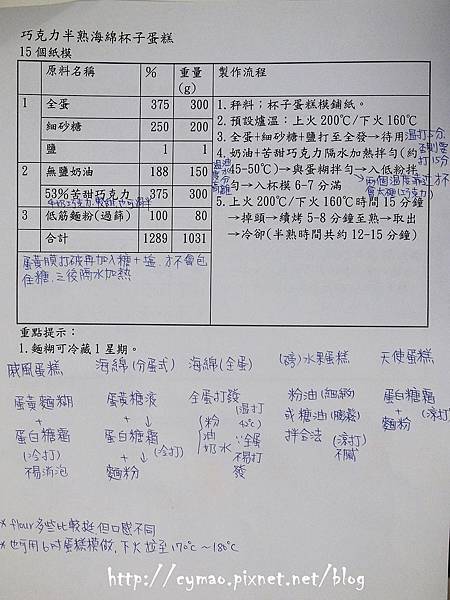 巧克力半熟海綿杯子蛋糕
15 個紙模
原料名稱 % 重量(g) 製作流程
1 全蛋 375 300
細砂糖 250 200
鹽 1 1
2 無鹽奶油 188 150
53%苦甜巧克力 375 300
3 低筋麵粉(過篩) 100 80
合計 1289 1031
1. 秤料；杯子蛋糕模鋪紙。
2. 預設爐溫：上火 200℃/下火 160℃
3. 全蛋+細砂糖+鹽打至全發→待用
4. 奶油+苦甜巧克力隔水加熱拌勻(約
45-50℃)→與蛋糊拌勻→入低粉拌
勻→入杯模 6-7 分滿
5. 上火 200℃/下火 160℃時間 15 分鐘
→掉頭→續烤 5-8 分鐘至熟→取出
→冷卻(半熟時間共約 12-15 分鐘)
蛋黃膜打破再加入糖+塩,才不會包
住糖,之後隔水加熱
重點提示：
1. 麵糊可冷藏 1 星期。
戚風蛋糕
蛋黃麵糊
+
蛋白糖霜
(冷打)
不易消泡
海綿(分蛋式)
蛋黃糖液
+ ↓
蛋白糖霜
+ ↓ (冷打)
麵粉
海綿(全蛋)
全蛋打發
(溫打
43℃)
粉
油
奶水
∵全蛋
不易打
發
(磅)水果蛋糕
粉油(細緻)
或糖油(膨鬆)
拌合法
不膩
天使蛋糕
蛋白糖霜
+
麵粉
* flour多些比較挺 但口感不同
* 也可用6吋蛋糕模做,下火加至170℃~180℃
http://cymao.pixnet.net/blog